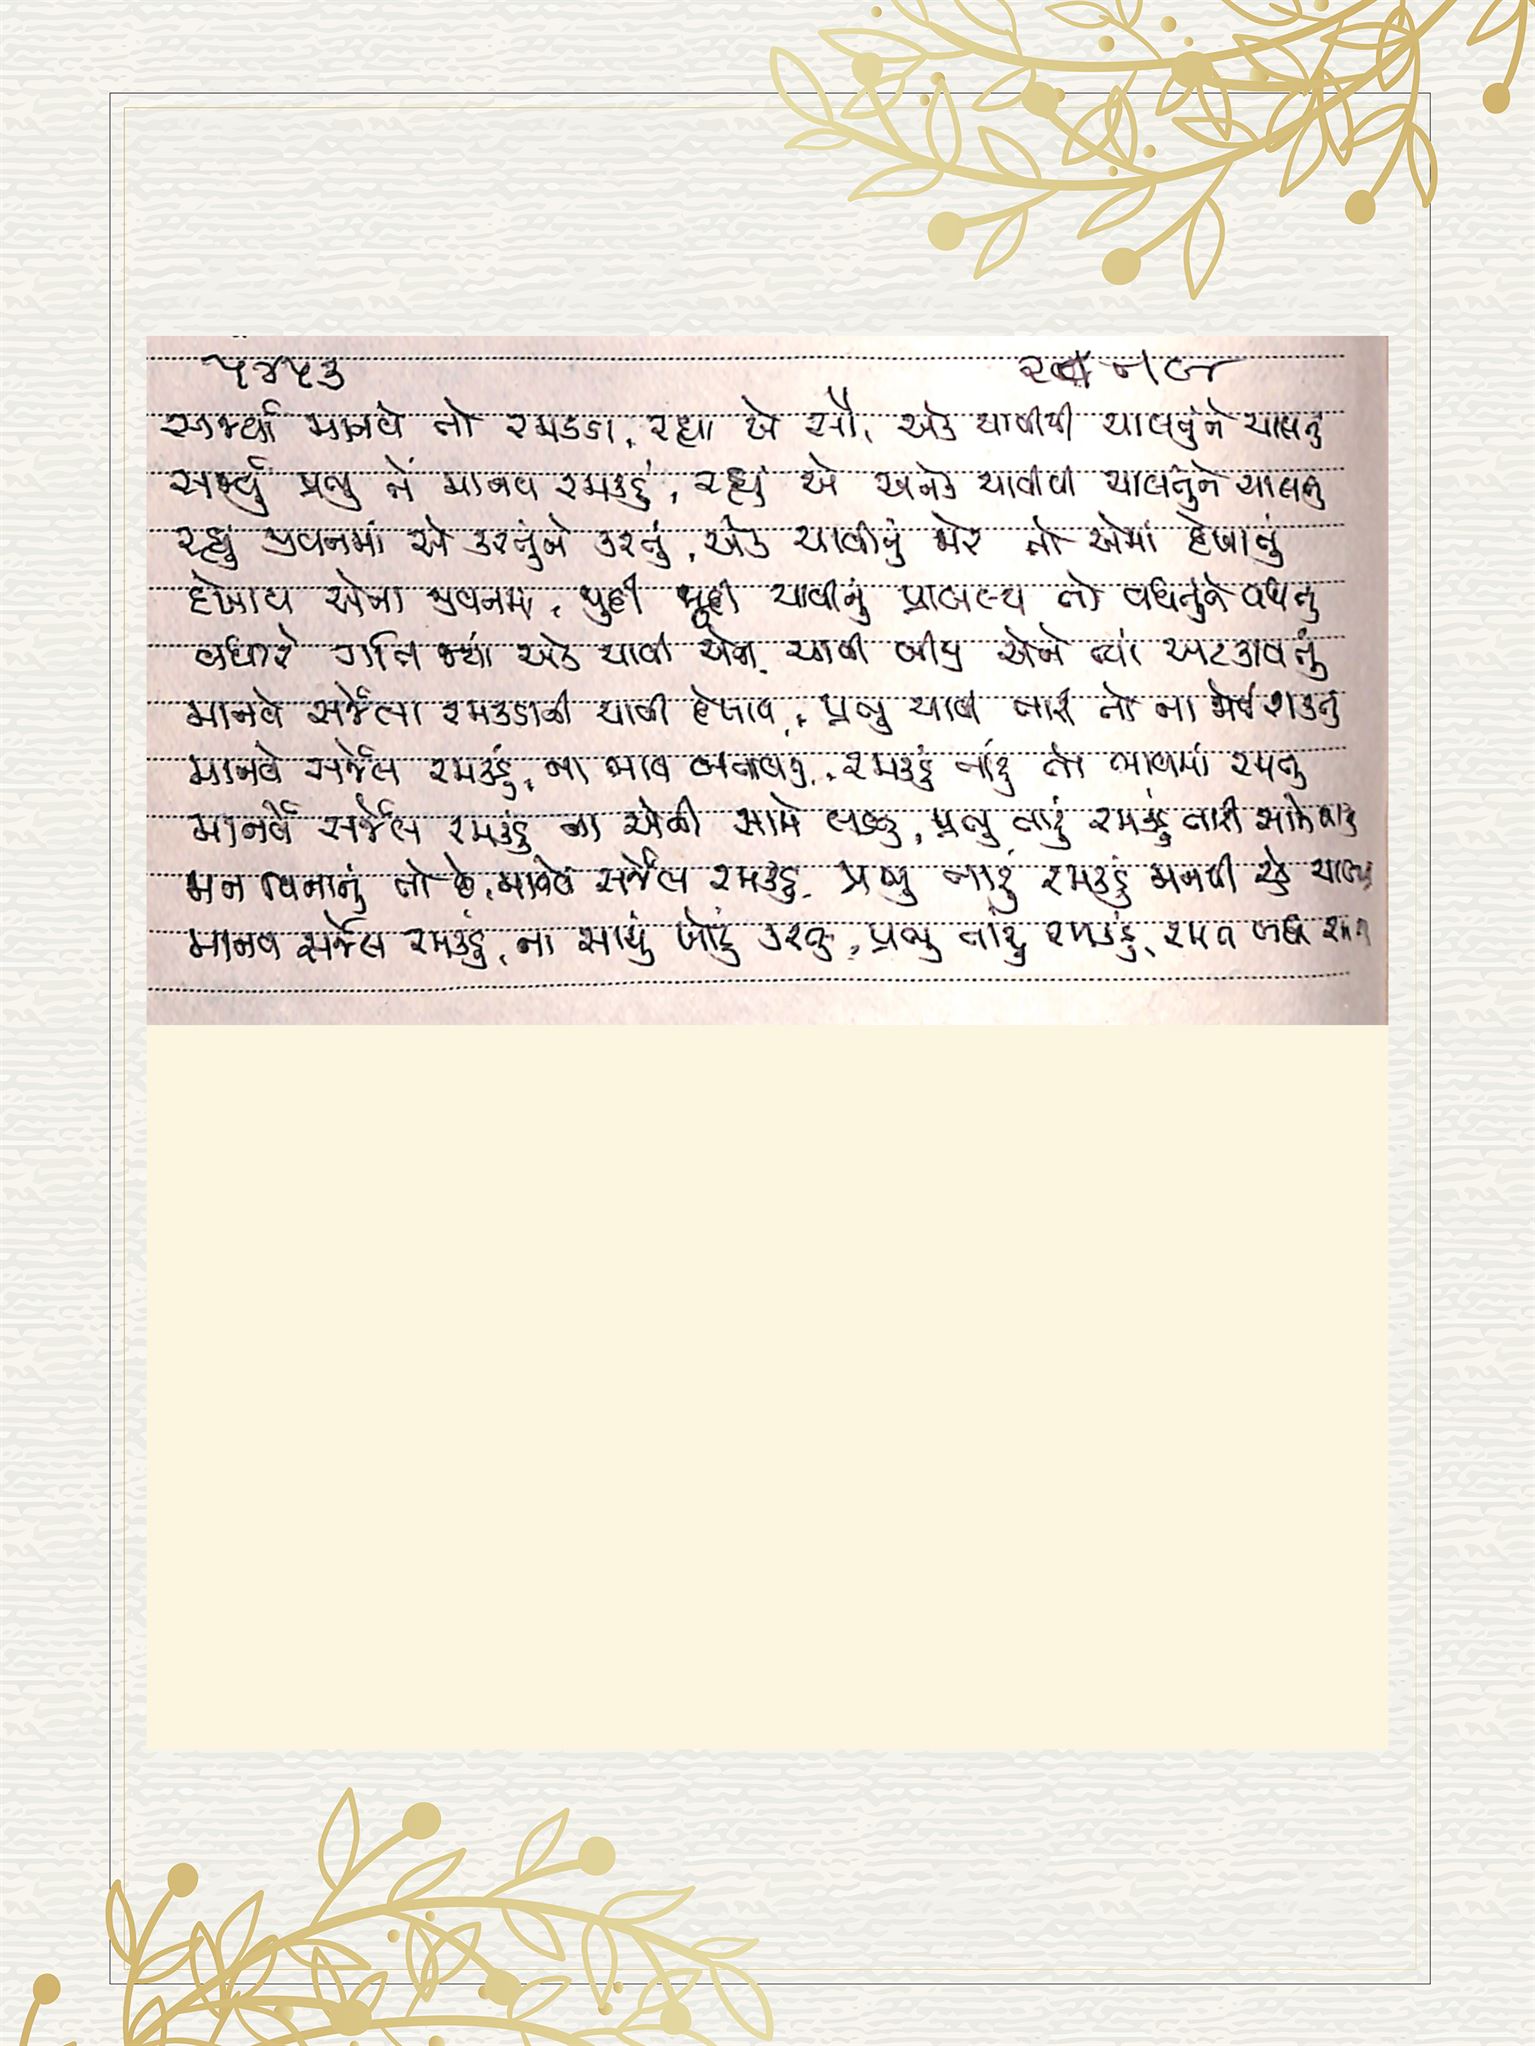 ૫૪૫૩
સર્જ્યા માનવે તો રમકડા, રહ્યા એ સૌ, એક ચાવીથી ચાલતુંને ચાલતું
સર્જ્યું પ્રભુ નેં માનવ રમકડું, રહ્યું એ અનેક ચાવીથી ચાલતુંને ચાલતું
રહ્યું જીવનમાં એ કરતુંને કરતું, એક ચાવીનું જોર તો એમાં દેખાતું
દેખાય એના જીવનમાં, જુદી જુદી ચાવીનું પ્રાબલ્ય તો વધતુંને વધતું
વધારે ગતિ જ્યાં એક ચાવી એને, ચાવી બીજી એને ત્યાં અટકાવતું
માનવે સર્જેલા રમકડાની ચાવી દેખાય, પ્રભુ ચાવી તારી તો ના જોઈ શકતું
માનવે સર્જેલ રમકડું, ના ભાવ બનાવતું, રમકડું તારું તો ભાવમાં રમતું
માનવે સર્જેલ રમકડું ના એની સામે લડતું, પ્રભુ તારું રમકડું તારી સામે
મન વિનાનું તો છે, માનવે સર્જેલ રમકડું, પ્રભુ તારું રમકડું મનથી રહે
માનવ સર્જેલ રમકડું, ના સાચું ખોટું કરતું, પ્રભુ તારું રમકડું, રમત બધી